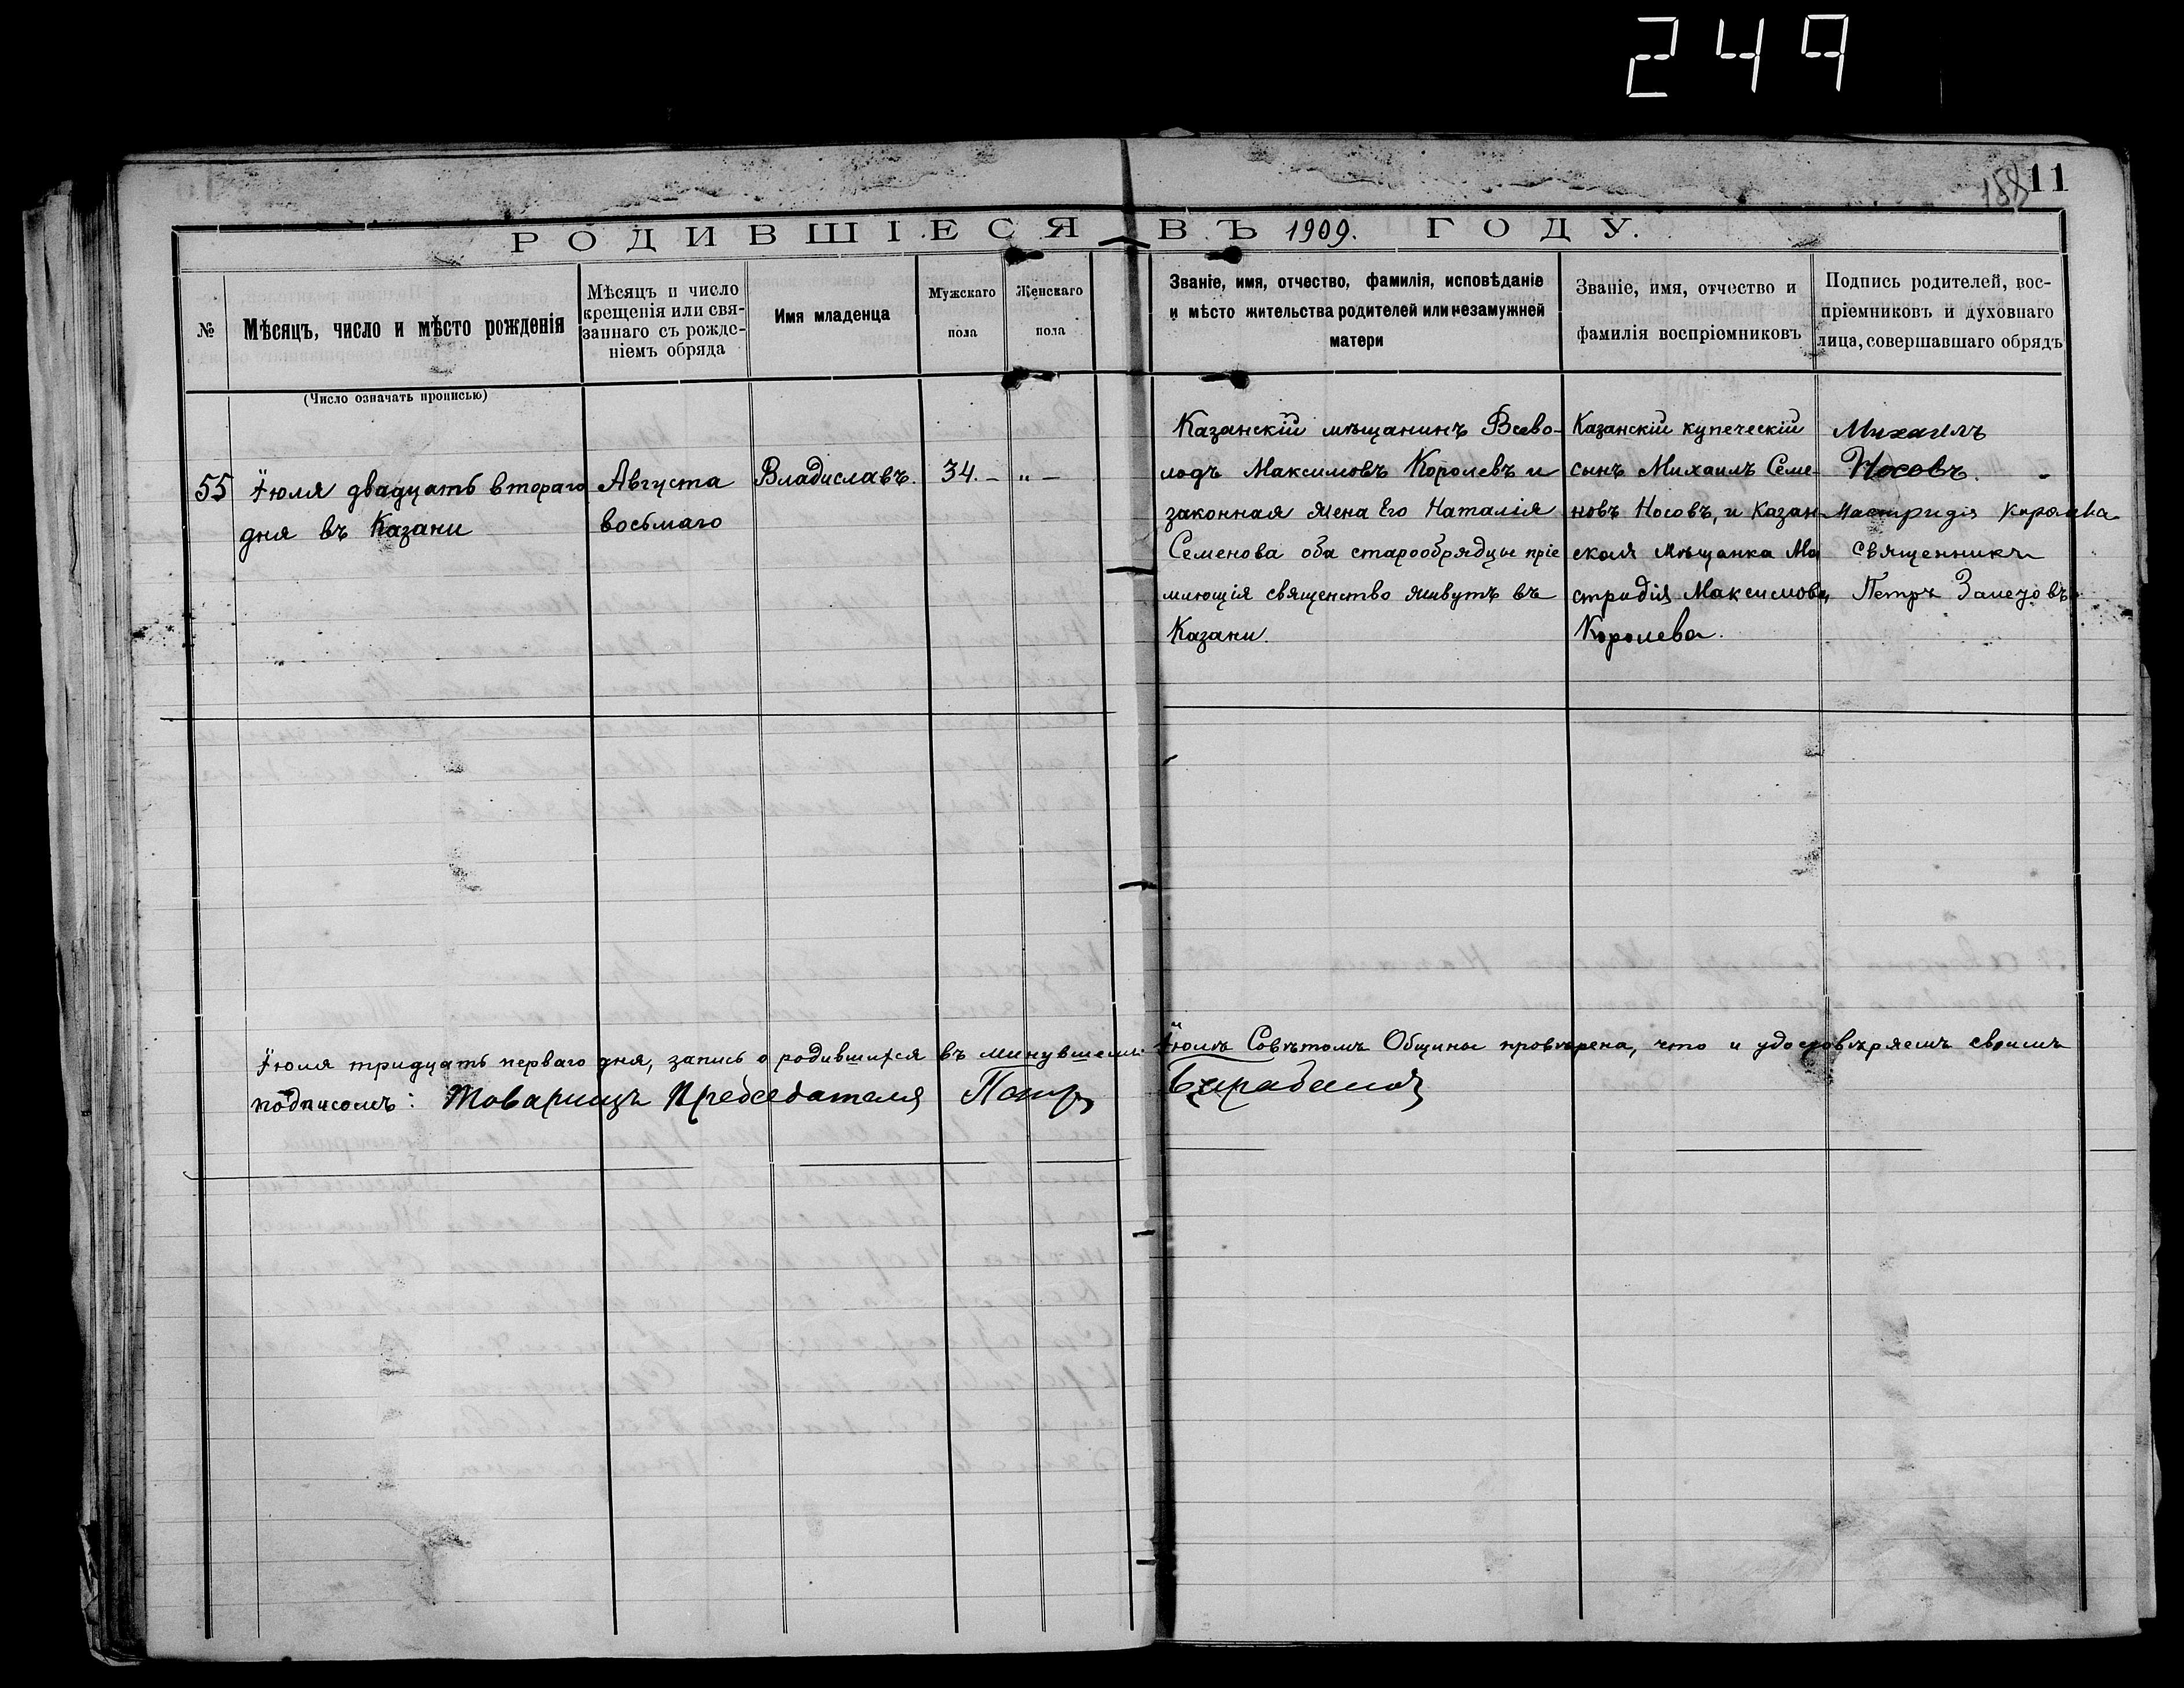 249
158 11
РОДИВШІЕСЯ ВЪ 1909. ГОДУ.
№
Мѣсяцъ, число и мѣсто рожденія
Мѣсяцъ и число
крещенія или свя-
заннаго съ рожде-
ніемъ обряда
Имя младенца
Мужскаго
пола
Женскаго
пола
Званіе, имя, отчество, фамилія, исповѣданіе
и мѣсто жительства родителей или незамужней
матери
Званіе, имя, отчество и
фамилія воспріемниковъ
Подпись родителей, вос-
пріемниковъ и духовнаго
лица, совершавшаго обрядъ
(Число означать прописью)
55
Іюля двадцать втораго
дня въ Казани
Августа
восьмаго
Владиславъ.
34. –
„ –
Казанскій мѣщанинъ Всево-
лодъ Максимовъ Королевъ и
законная жена Его Наталія
Семенова оба старообрядцы пріе
млющія священство живутъ въ
Казани.
Казанскій купеческій
сынъ Михаилъ Семе-
новъ Носовъ, и Казан-
ская мѣщанка Ма
стридія Максимова
Королева.
Михаилъ
Носовъ.
Мастридія Королева
священникъ
Петръ Залетовъ
Іюля тридцать перваго дня, запись о родившихся въ минувшемъ Іюлѣ Совѣтомъ Общины провѣрена, что и удостовѣряемъ своимъ
подписомъ: Товарищъ Предсѣдателя Петръ